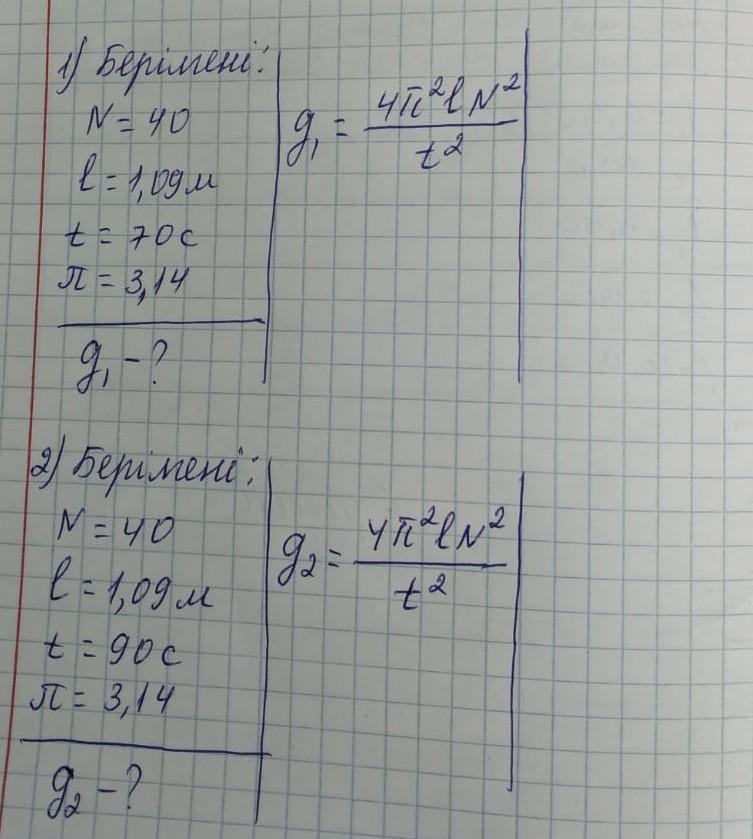 1) Берілгені:
N = 40
l = 1,09 м
t = 70 с
π = 3,14
g₁ - ?
g₁ = 4π²lN² / t²
2) Берілгені:
N = 40
l = 1,09 м
t = 90 с
π = 3,14
g₂ - ?
g₂ = 4π²lN² / t²